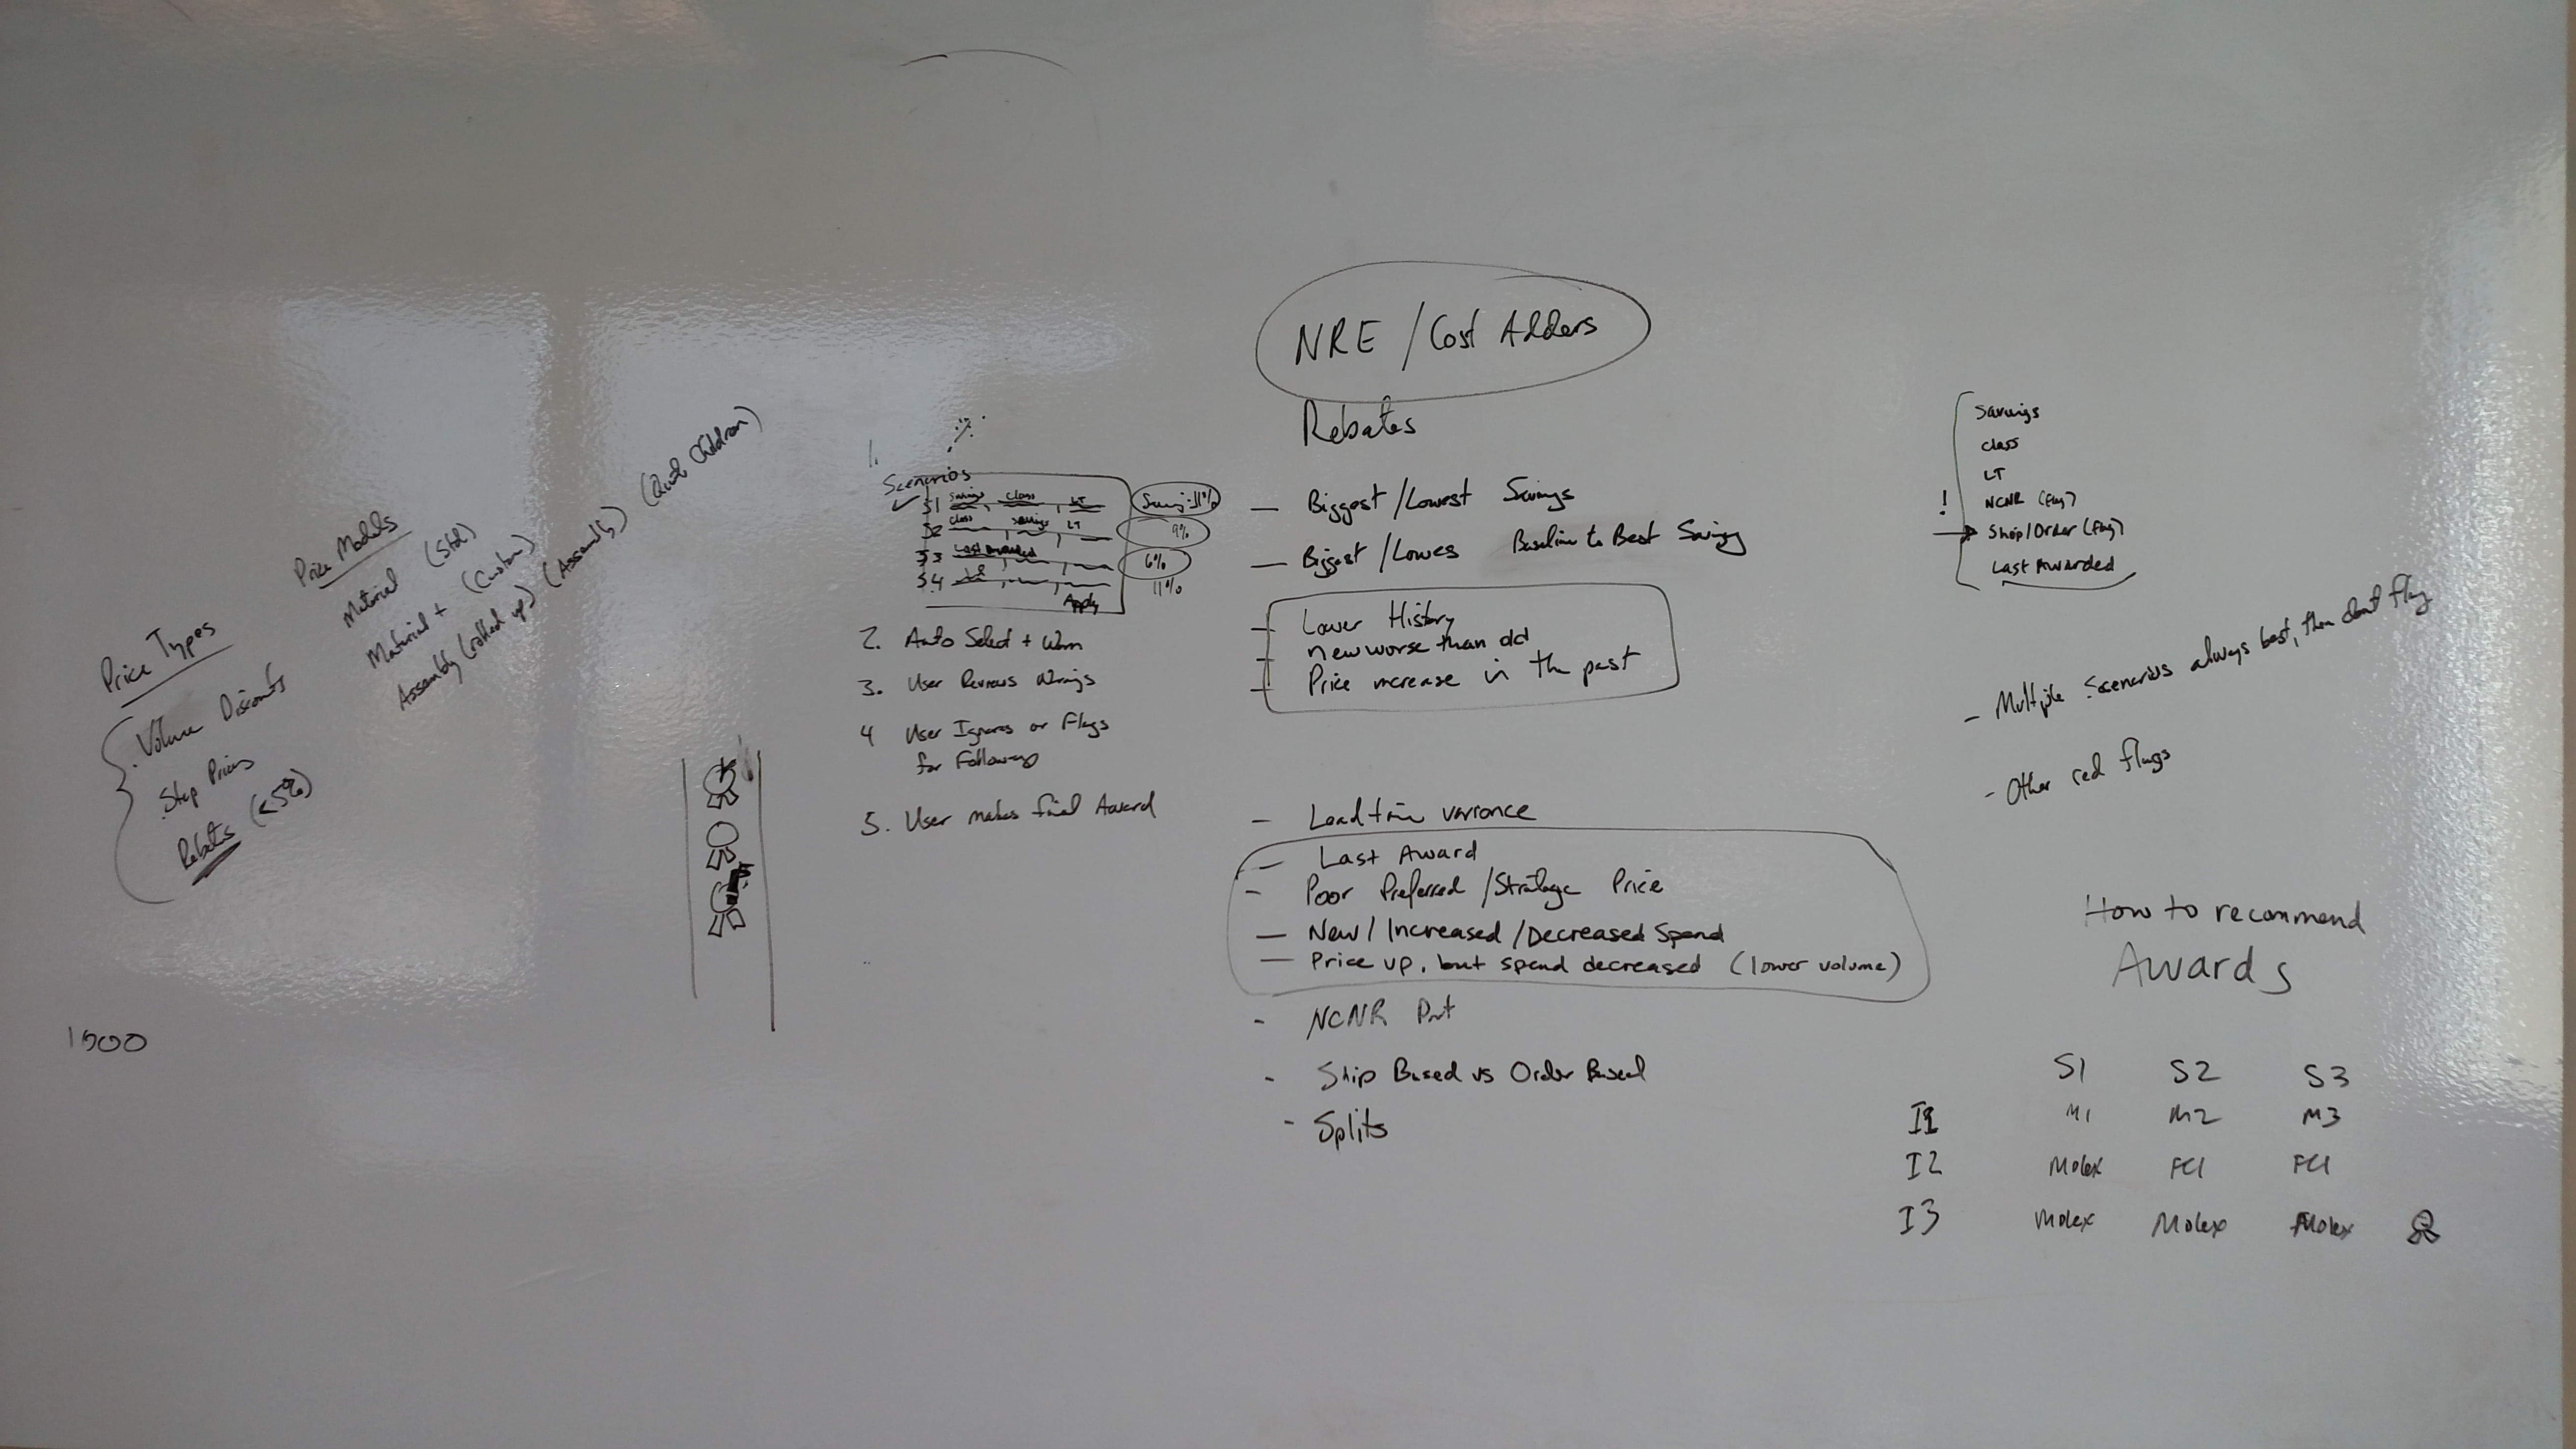 Price Types
Volume Discounts
Step Prices
Rebates (<5%)
Price Models
Material (Std)
Material + (Custom)
Assembly (rolled up) (Assembly) (Quote Children)
1500
1.
%
Scenarios
S1 Savings Class LT
S2 Class Savings LT 9%
S3 Last Awarded 6%
S4 11%
Apply
2. Auto Select + Warn
3. User Reviews
4 User Ignores or Flags
for Followup
5. User makes final Award
NRE / Cost Adders
Rebates
- Biggest / Lowest Savings
- Biggest / Lowes Baseline to Best Savings
- Lower History
- new worse than old
- Price increase in the past
- Leadtime variance
- Last Award
- Poor Preferred / Strategic Price
- New / Increased / Decreased Spend
- Price up, but spend decreased (lower volume)
- NCNR Part
- Ship Based vs Order Based
- Splits
Savings
Class
LT
! NCNR (flag)
Ship/Order (flag)
Last Awarded
- Multiple Scenarios always best, then dont flag
- Other red flags
How to recommend
Awards
S1 S2 S3
I1 M1 M2 M3
I2 Molex FCI FCI
I3 Molex Molex Molex